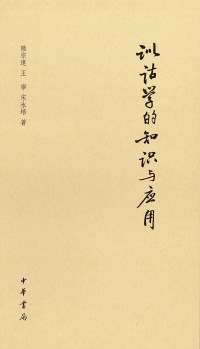 训诂学的知识与应用
陆宗达 王 宁 宋永培 著
中华书局